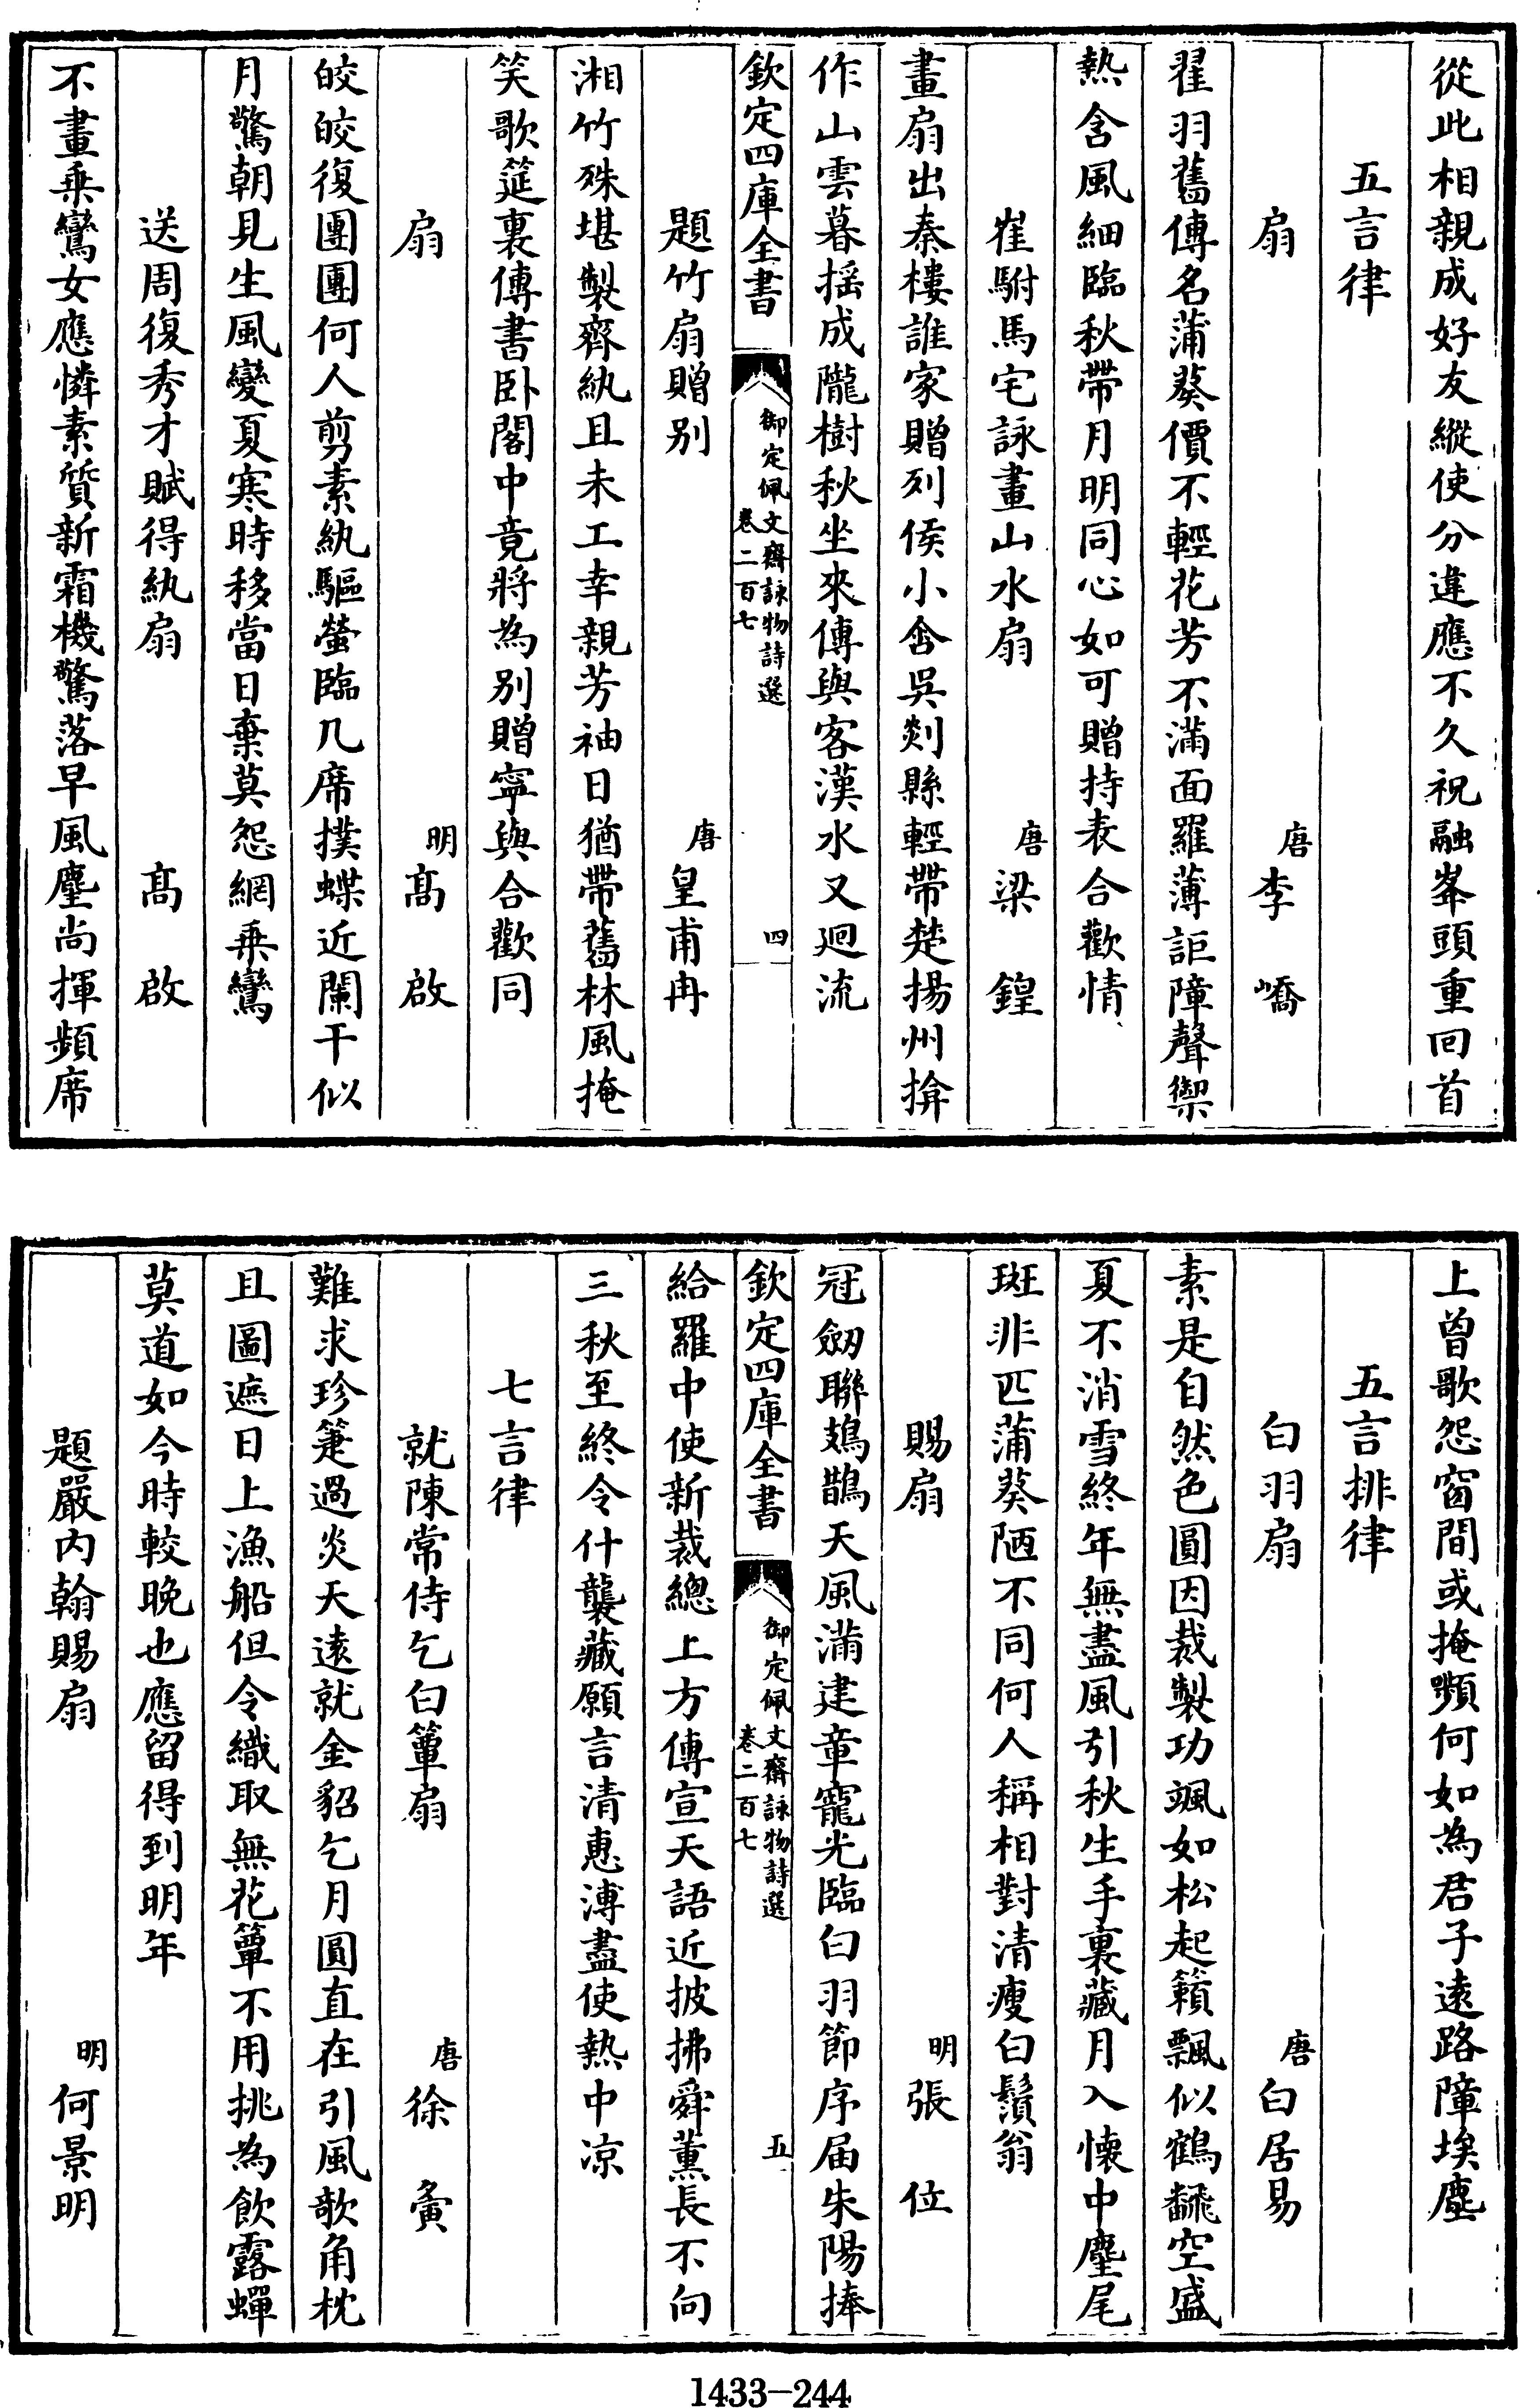 從此相親成好友縱使分違應不久祝融峯頭重回首
五言律
扇 唐李嶠
翟羽舊傳名蒲葵價不輕花芳不滿面羅薄詎障聲禦
熱含風細臨秋帶月明同心如可贈持表合歡情
崔駙馬宅詠畫山水扇 唐梁鍠
畫扇出秦樓誰家贈列侯小含吳剡縣輕帶楚揚州掩
作山雲暮揺成隴樹秋坐來傳與客漢水又廻流
欽定四庫全書 御定佩文齋詠物詩選 卷二百七 四
題竹扇贈别 唐皇甫冉
湘竹殊堪製齊紈且未工幸親芳袖日猶帶舊林風掩
笑歌筵裏傳書卧閣中竟將為别贈寧與合歡同
扇 明髙啟
皎皎復團團何人剪素紈驅螢臨几席撲蝶近闌干似
月驚朝見生風變夏寒時移當日棄莫怨網乗鸞
送周復秀才賦得紈扇 髙啟
不畫乗鸞女應憐素質新霜機驚落早風塵尚揮頻席
上曽歌怨窗間或掩顰何如為君子逺路障埃塵
五言排律
白羽扇 唐白居易
素是自然色圓因裁製功颯如松起籟飄似鶴翻空盛
夏不消雪終年無盡風引秋生手裏藏月入懐中麈尾
斑非匹蒲葵陋不同何人稱相對清瘦白鬚翁
賜扇 明張位
冠劒聯鳷鵲天風滿建章寵光臨白羽節序届朱陽捧
欽定四庫全書 御定佩文齋詠物詩選 卷二百七 五
給羅中使新裁總上方傳宣天語近披拂舜薰長不向
三秋至終令什襲藏願言清惠溥盡使熱中凉
七言律
就陳常侍乞白簟扇 唐徐夤
難求珍箑過炎天逺就金貂乞月圓直在引風欹角枕
且圖遮日上漁船但令織取無花簟不用挑為飲露蟬
莫道如今時較晚也應留得到明年
題嚴内翰賜扇 明何景明
1433-244